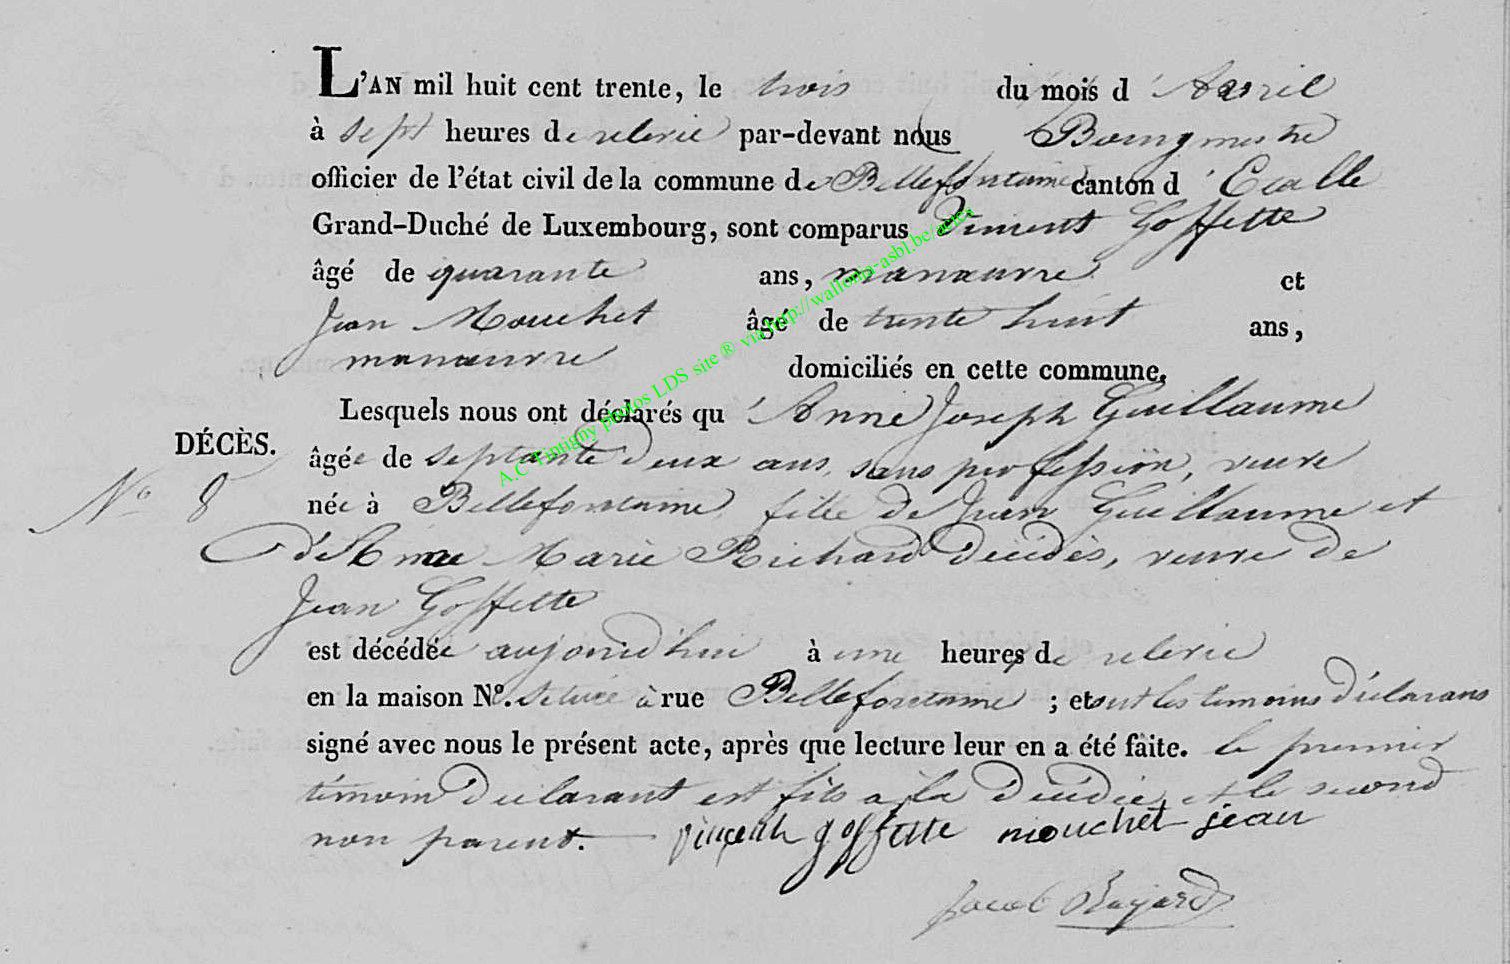 L'AN mil huit cent trente, le trois du mois d'Avril
à sept heures de relevée par-devant nous Bourgmestre
officier de l'état civil de la commune de Bellefontaine canton d'Etalle
Grand-Duché de Luxembourg, sont comparus Vincent Goffette
âgé de quarante ans, manœuvre et
Jean Mouchet âgé de trente huit ans,
manœuvre domiciliés en cette commune.
Lesquels nous ont déclarés qu'Anne Joseph Guillaume
DÉCÈS.
âgée de septante deux ans, sans profession, veuve
No 8
née à Bellefontaine fille de Jean Guillaume et
d' Marie Richard décédés, veuve de
Jean Goffette
est décédée aujourd'hui à une heures de relevée
en la maison No. située à rue Bellefontaine ; et ont les temoins déclarans
signé avec nous le présent acte, après que lecture leur en a été faite. le premier
témoin déclarant est fils à la décédée et le second
non parent. vincent goffette mouchet jean
Jacob
A.C Tintigny photos LDS site ® via http://wallonia-asbl.be/actes